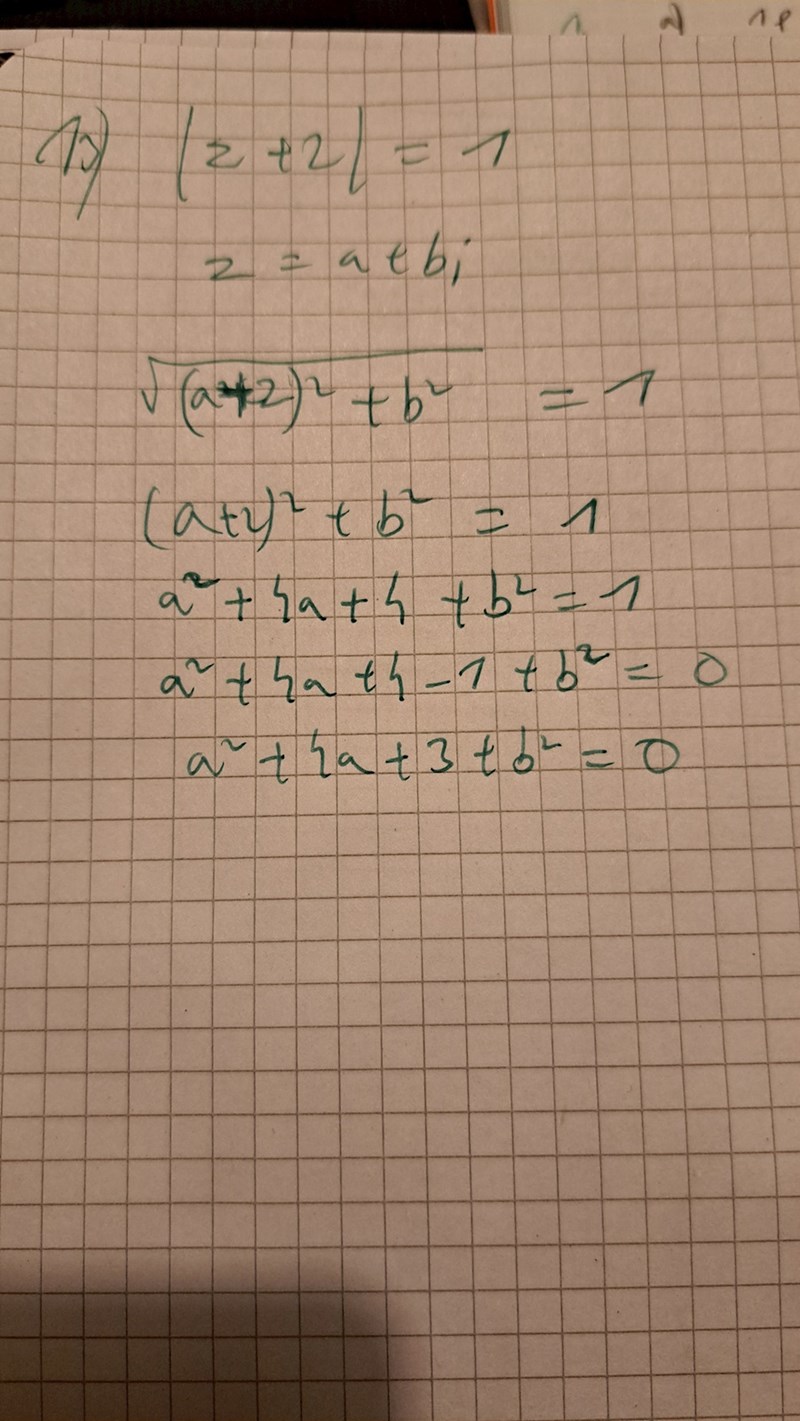 1b) |z + 2| = 1
z = a + bi
√((a+2)² + b²) = 1
(a+2)² + b² = 1
a² + 4a + 4 + b² = 1
a² + 4a + 4 - 1 + b² = 0
a² + 4a + 3 + b² = 0